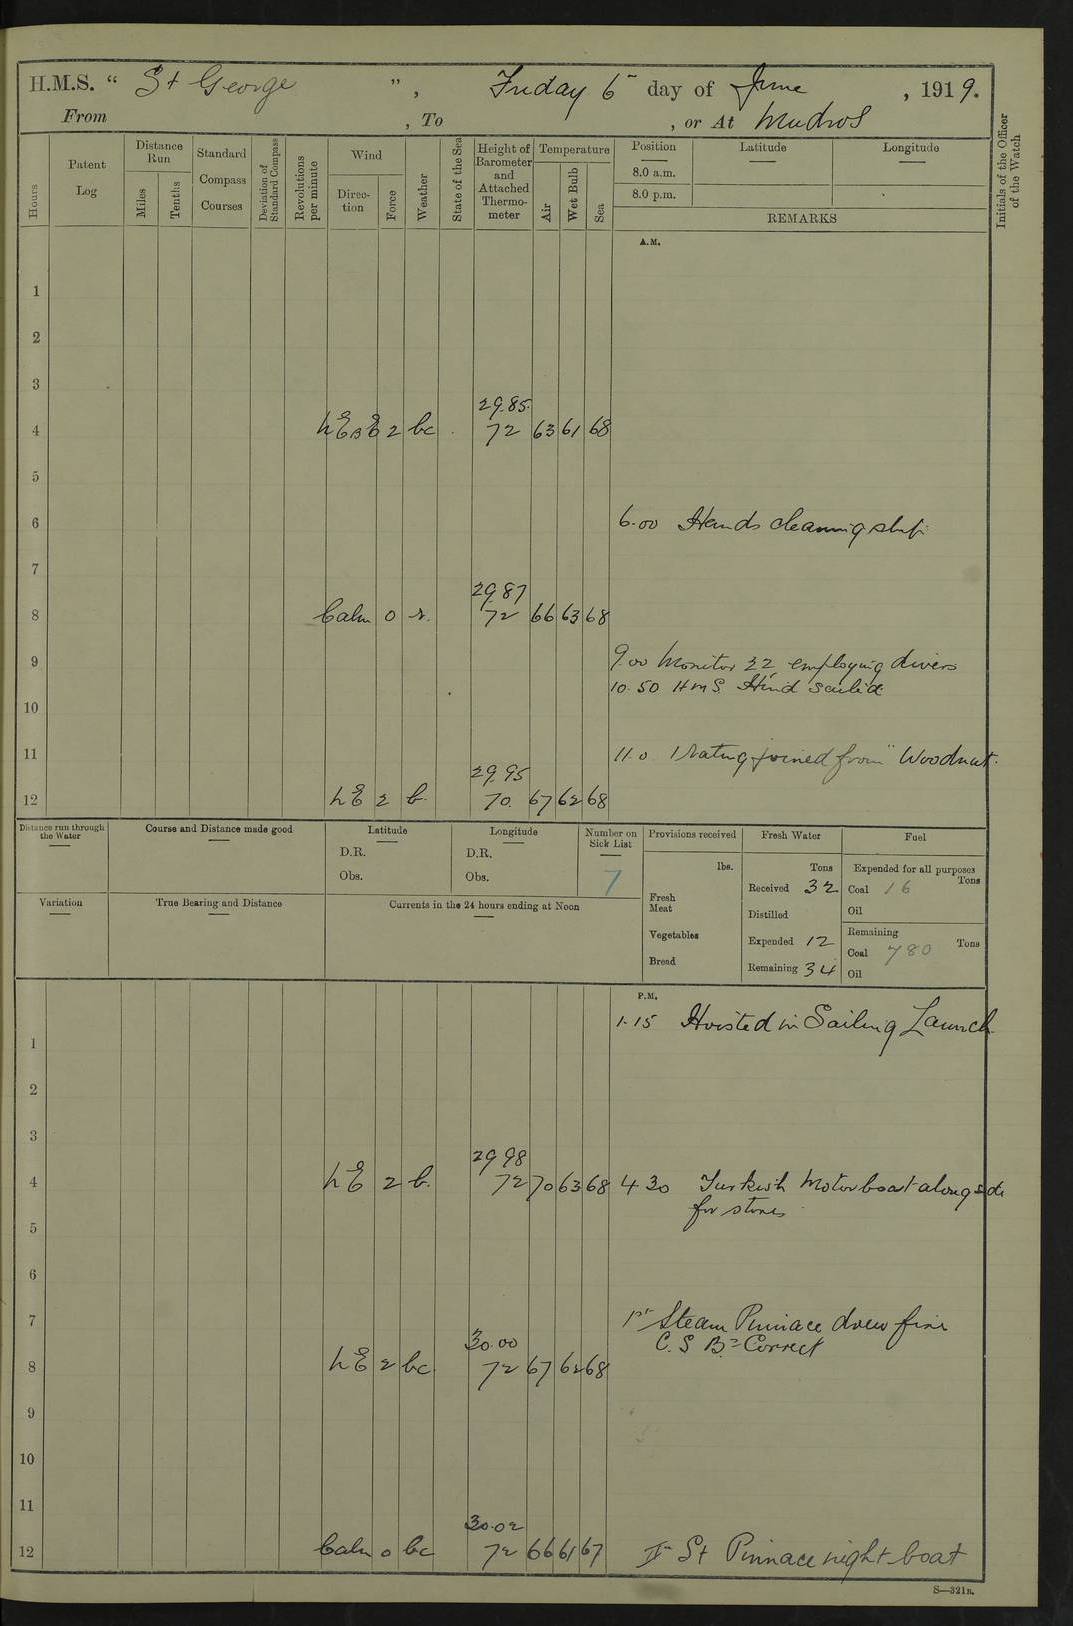 H.M.S. “ St George ”, Friday 6th day of June, 1919.
From , To , or At Mudros
Hours
Patent Log
Distance Run
Miles
Tenths
Standard Compass Courses
Deviation of Standard Compass
Revolutions per minute
Wind
Direction
Force
Weather
State of the Sea
Height of Barometer and Attached Thermometer
Temperature
Air
Wet Bulb
Sea
Position
8.0 a.m.
8.0 p.m.
Latitude
Longitude
REMARKS
Initials of the Officer of the Watch
A.M.
1
2
3
29.85
4 NE B E 2 bc 72 63 61 68
5
6 6.00 Hands cleaning ship
7
29.87
8 Calm 0 r. 72 66 63 68
9 9.00 Monitor 22 employing divers
10.50 HMS Hind sailed
10
11 11.0 1 rating joined from "Woodnut"
29.95
12 NE 2 b. 70 67 62 68
Distance run through the Water
Course and Distance made good
Latitude
D.R.
Obs.
Longitude
D.R.
Obs.
Number on Sick List
7
Provisions received
lbs.
Fresh Meat
Vegetables
Bread
Fresh Water
Tons
Received 32
Distilled
Expended 12
Remaining 34
Fuel
Expended for all purposes
Tons
Coal 16
Oil
Remaining
Coal 780 Tons
Oil
Variation
True Bearing and Distance
Currents in the 24 hours ending at Noon
P.M.
1.15 Hoisted in Sailing Launch
1
2
3
29 98
4 NE 2 b. 72 70 63 68 4 30 Turkish Motor boat alongside
for stores
5
6
7 1st Steam Pinnace drew fires
C. S. B.s Correct
30.00
8 NE 2 bc 72 67 62 68
9
10
11
30.02
12 Calm 0 bc 72 66 61 67 II St Pinnace night boat
S—321B.